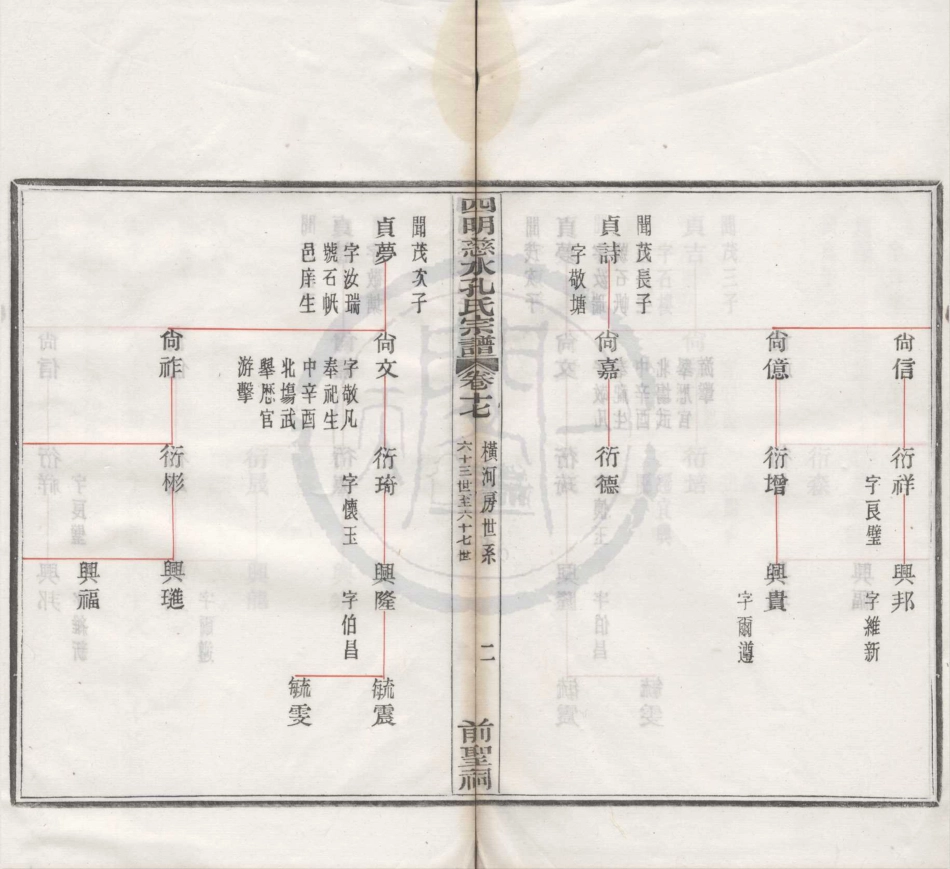 尙信
衍祥
字良璧
興邦
字維新
尙億
衍增
興貴
字爾遵
聞茂長子
貞詩
字敬塘
尙嘉
衍德
四明慈水孔氏宗譜
卷十七
橫河房世系
六十三世至六十七世
二
前聖祠
聞茂次子
貞夢
字汝瑞
號石帆
邑庠生
尙文
字敬凡
奉祀生
中辛酉
北場武
舉歷官
游擊
衍琦
字懷玉
興隆
字伯昌
毓震
毓雯
尙祚
衍彬
興璡
興福